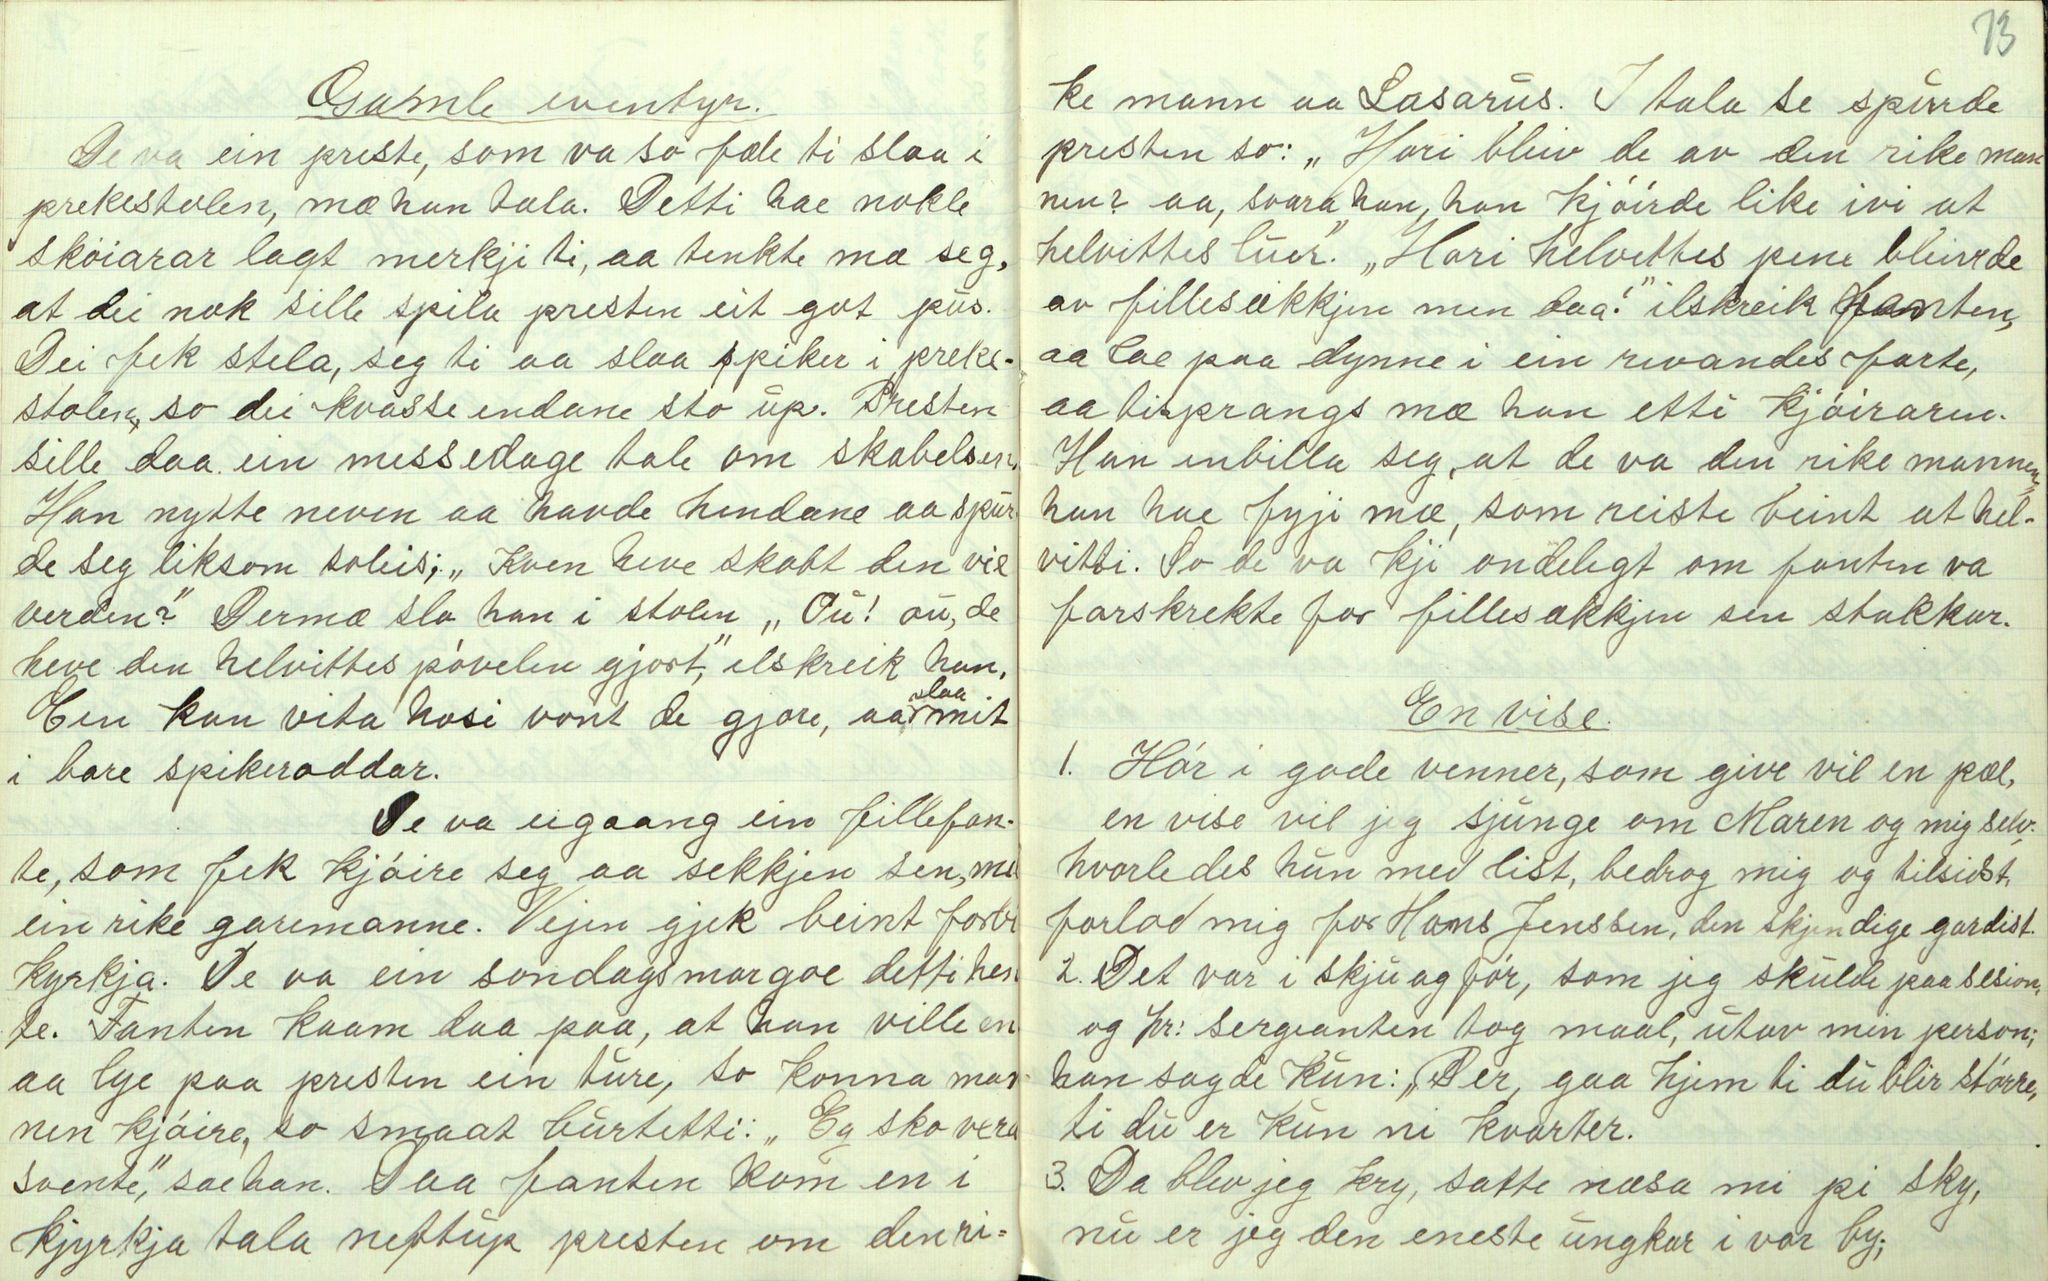 Gamle eventyr.
De va ein preste, som va so fæle ti slaa i
prekestolen, mæ han tala. Detti hae nokle
skøiarar lagt merkji ti, aa tenkte mæ seg,
at dei nok sille spila presten eit got pus.
Dei fek stela, seg ti aa slaa spiker i preke-
stolen, so dei kvasse endane sto up. Presten
sille daa ein messedage tale om skabelsen.
Han nytte neven aa havde hendane aa spur-
de seg liksom soleis; „Kven heve skabt den vie
verden?" Dermæ slo han i stolen „Ou! ou, de
heve den helvittes pøvelen gjort," ilskreik han,
Ein kan vita hosi vont de gjore, aa slaa mit
i bare spikeroddar.
De va eigaang ein fillefan-
te, som fek kjøire seg aa sekkjen sen, mæ
ein rike garemanne. Vejen gjek beint forbi
kyrkja. De va ein sondagsmorgoe detti hen-
te. Fanten kaam daa paa, at han ville en
aa lye paa presten ein ture, so konna man-
nen kjøire, so smaat burtetti: „Eg sko vera
svente," sae han. Daa fanten kom en i
kjyrkja tala nettup presten om den ri-
73
ke mann aa Lasarus. I tala se spurde
presten so: „Hori bleiv de av den rike man
nen? aa, svara han, han kjøirde like ivi at
helvittes luer." „Hori helvettes pene bleivrde
av fillesækkjen men daa!" ilskreik fanten,
aa lae paa dynne i ein rivandes farte,
aa tisprangs mæ han etti kjøiraren.
Han inbilla seg, at de va den rike mannen,
han hae fyji mæ, som reiste beint at hel-
vitti. So de va kji ondelegt om fanten va
forskrekte for fillesækkjen sen stakkar.
En vise.
1. Hør i gode venner, som give vil en pæl,
en vise vil jeg sjunge om Maren og mig selv.
hvorledes hun med list, bedrog mig og tilsidst,
forlod mig for Hans Jenssen, den skjendige gardist.
2. Det var i skjuag før, som jeg skulde paa sesion,
og hr: sergeanten tog maal, utav min person;
han sagde kun: „Per, gaa hjem ti du blir større,
ti du er kun ni kvarter.
3. Da blev jeg kry, satte næsa mi pi sky,
nu er jeg den eneste ungkar i vor by;